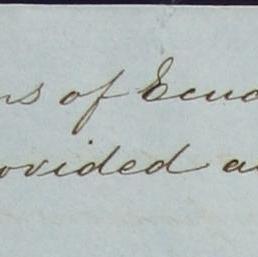 ns of Ecua
ovided a